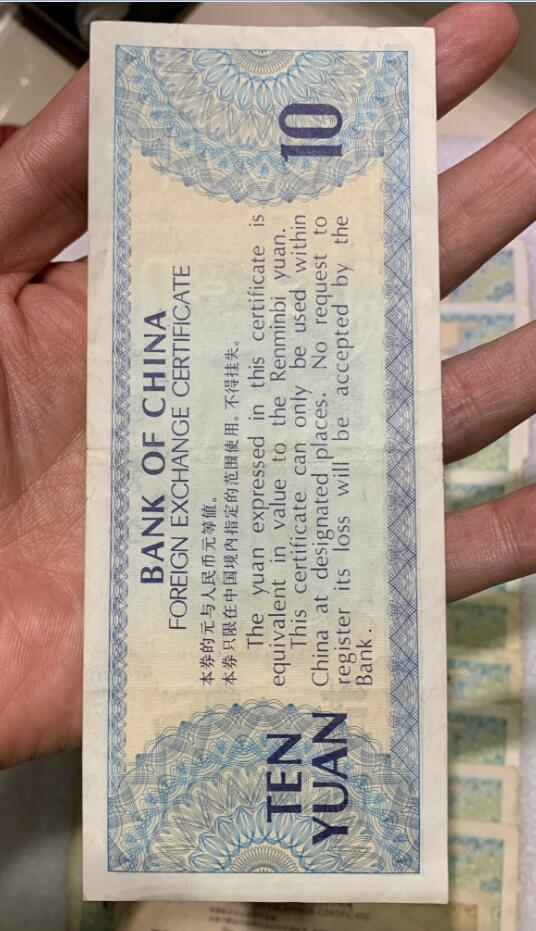 10
BANK OF CHINA
FOREIGN EXCHANGE CERTIFICATE
本券的元与人民币元等值。
本券只限在中国境内指定的范围使用。不得挂失。
The yuan expressed in this certificate is
equivalent in value to the Renminbi yuan.
This certificate can only be used within
China at designated places. No request to
register its loss will be accepted by the
Bank.
TEN
YUAN